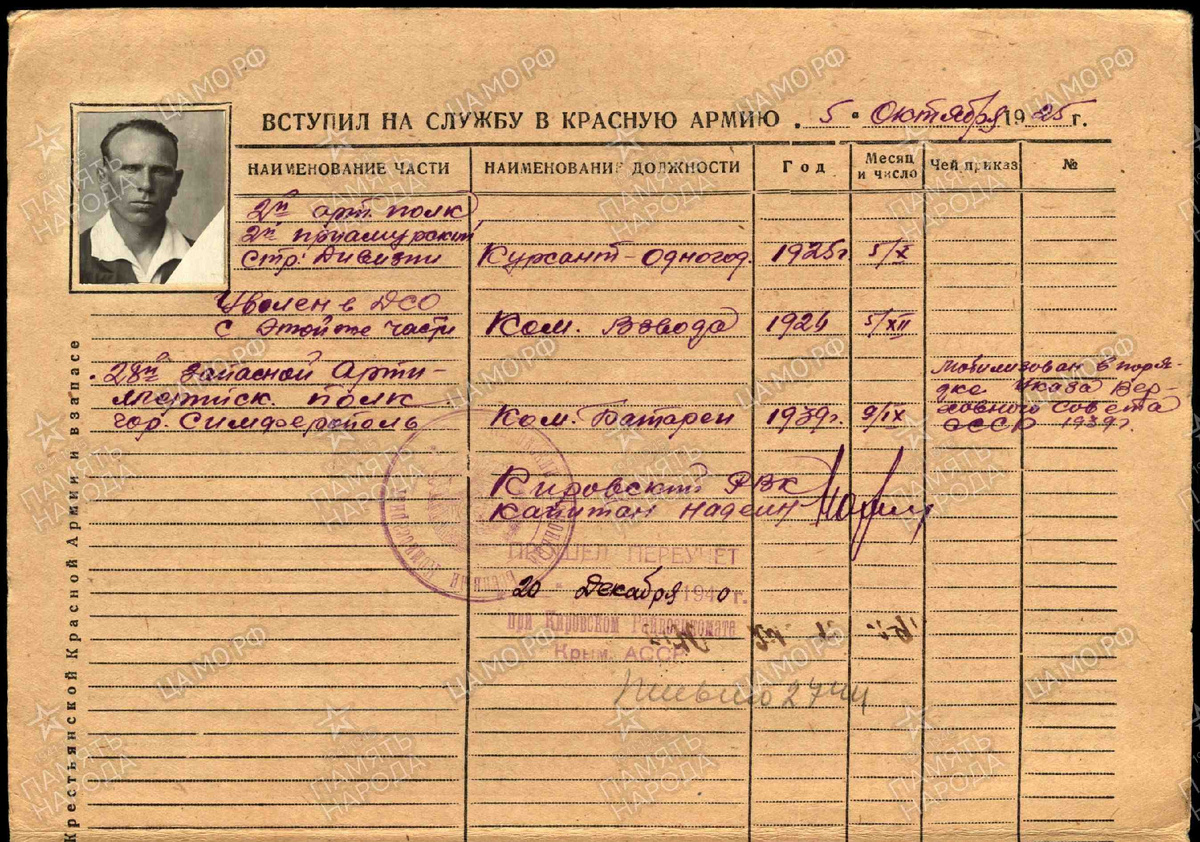 ВСТУПИЛ НА СЛУЖБУ В КРАСНУЮ АРМИЮ „ 5 " Октября 1925 г.
НАИМЕНОВАНИЕ ЧАСТИ НАИМЕНОВАНИЕ ДОЛЖНОСТИ Год Месяц и число Чей приказ №
2й арт. полк
2й приамурский
стр. дивизии Курсант-одногод. 1925г 5/X
Уволен в ДСО
с этой же части Ком. Взвода 1926 5/XII
28й Запасной Арти-
лерийск. полк
гор. Симферополь Ком. Батареи 1939г. 9/IX
Мобилизован в поря-
дке Указа Вер-
ховного совета
СССР 1939г.
Кировский РВК
капитан Надеин
ПРОШЕЛ ПЕРЕУЧЕТ
20 Декабря 1940г.
при Кировском Райвоенкомате
Крым. АССР
Крестьянской Красной Армии и в запасе
ЦАМО.РФ
ПАМЯТЬ НАРОДА